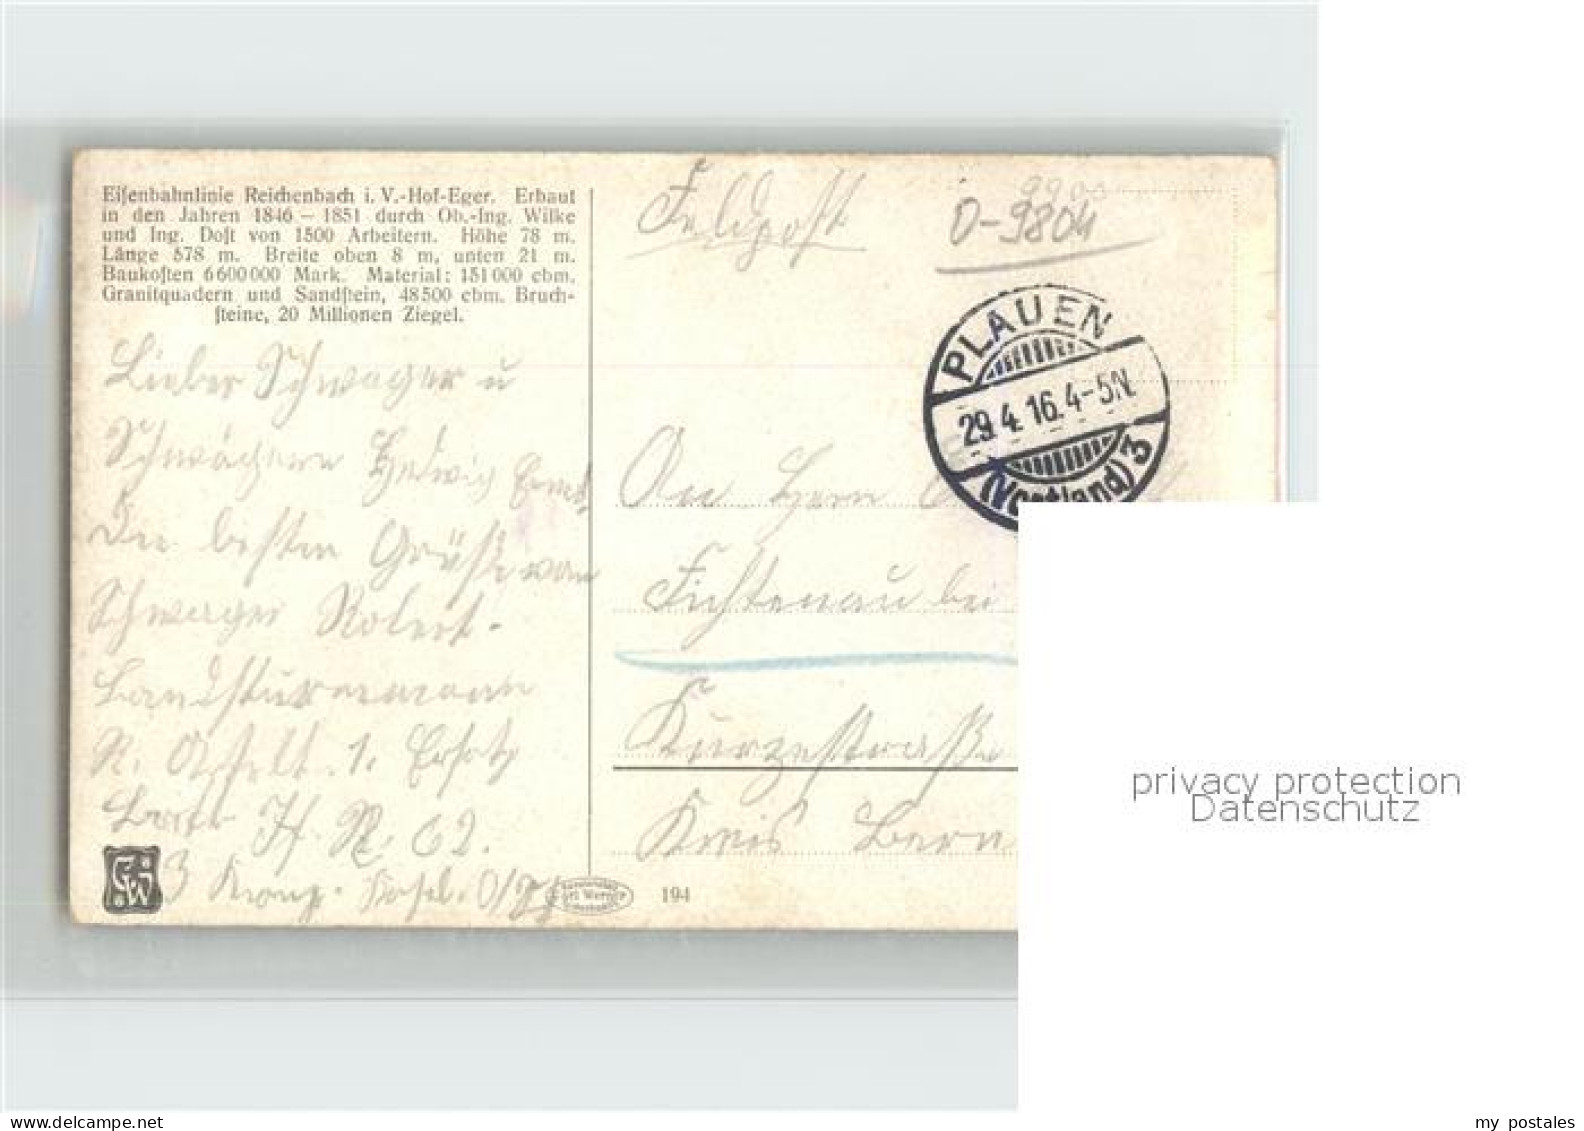 Eiſenbahnlinie Reichenbach i. V.-Hof-Eger. Erbaut
in den Jahren 1846 – 1851 durch Ob.-Ing. Wilke
und Ing. Doſt von 1500 Arbeitern. Höhe 78 m.
Länge 578 m. Breite oben 8 m, unten 21 m.
Baukoſten 6 600 000 Mark. Material: 151 000 cbm.
Granitquadern und Sandſtein, 48 500 cbm. Bruch-
ſteine, 20 Millionen Ziegel.
Lieber Schwager u
Schwägern Hedwig
Die besten Grüße von
Schwager Robert.
Landsturmmann
1. Ersatz
R. 62.
3
Feldpost
9900
O-9804
PLAUEN
29.4.16.4-5N.
(Vogtland) 3
An Herrn
Fichtenau bei
Kurzestraße
Kreis Bern
Carl Werner
194
privacy protection
Datenschutz
my postales